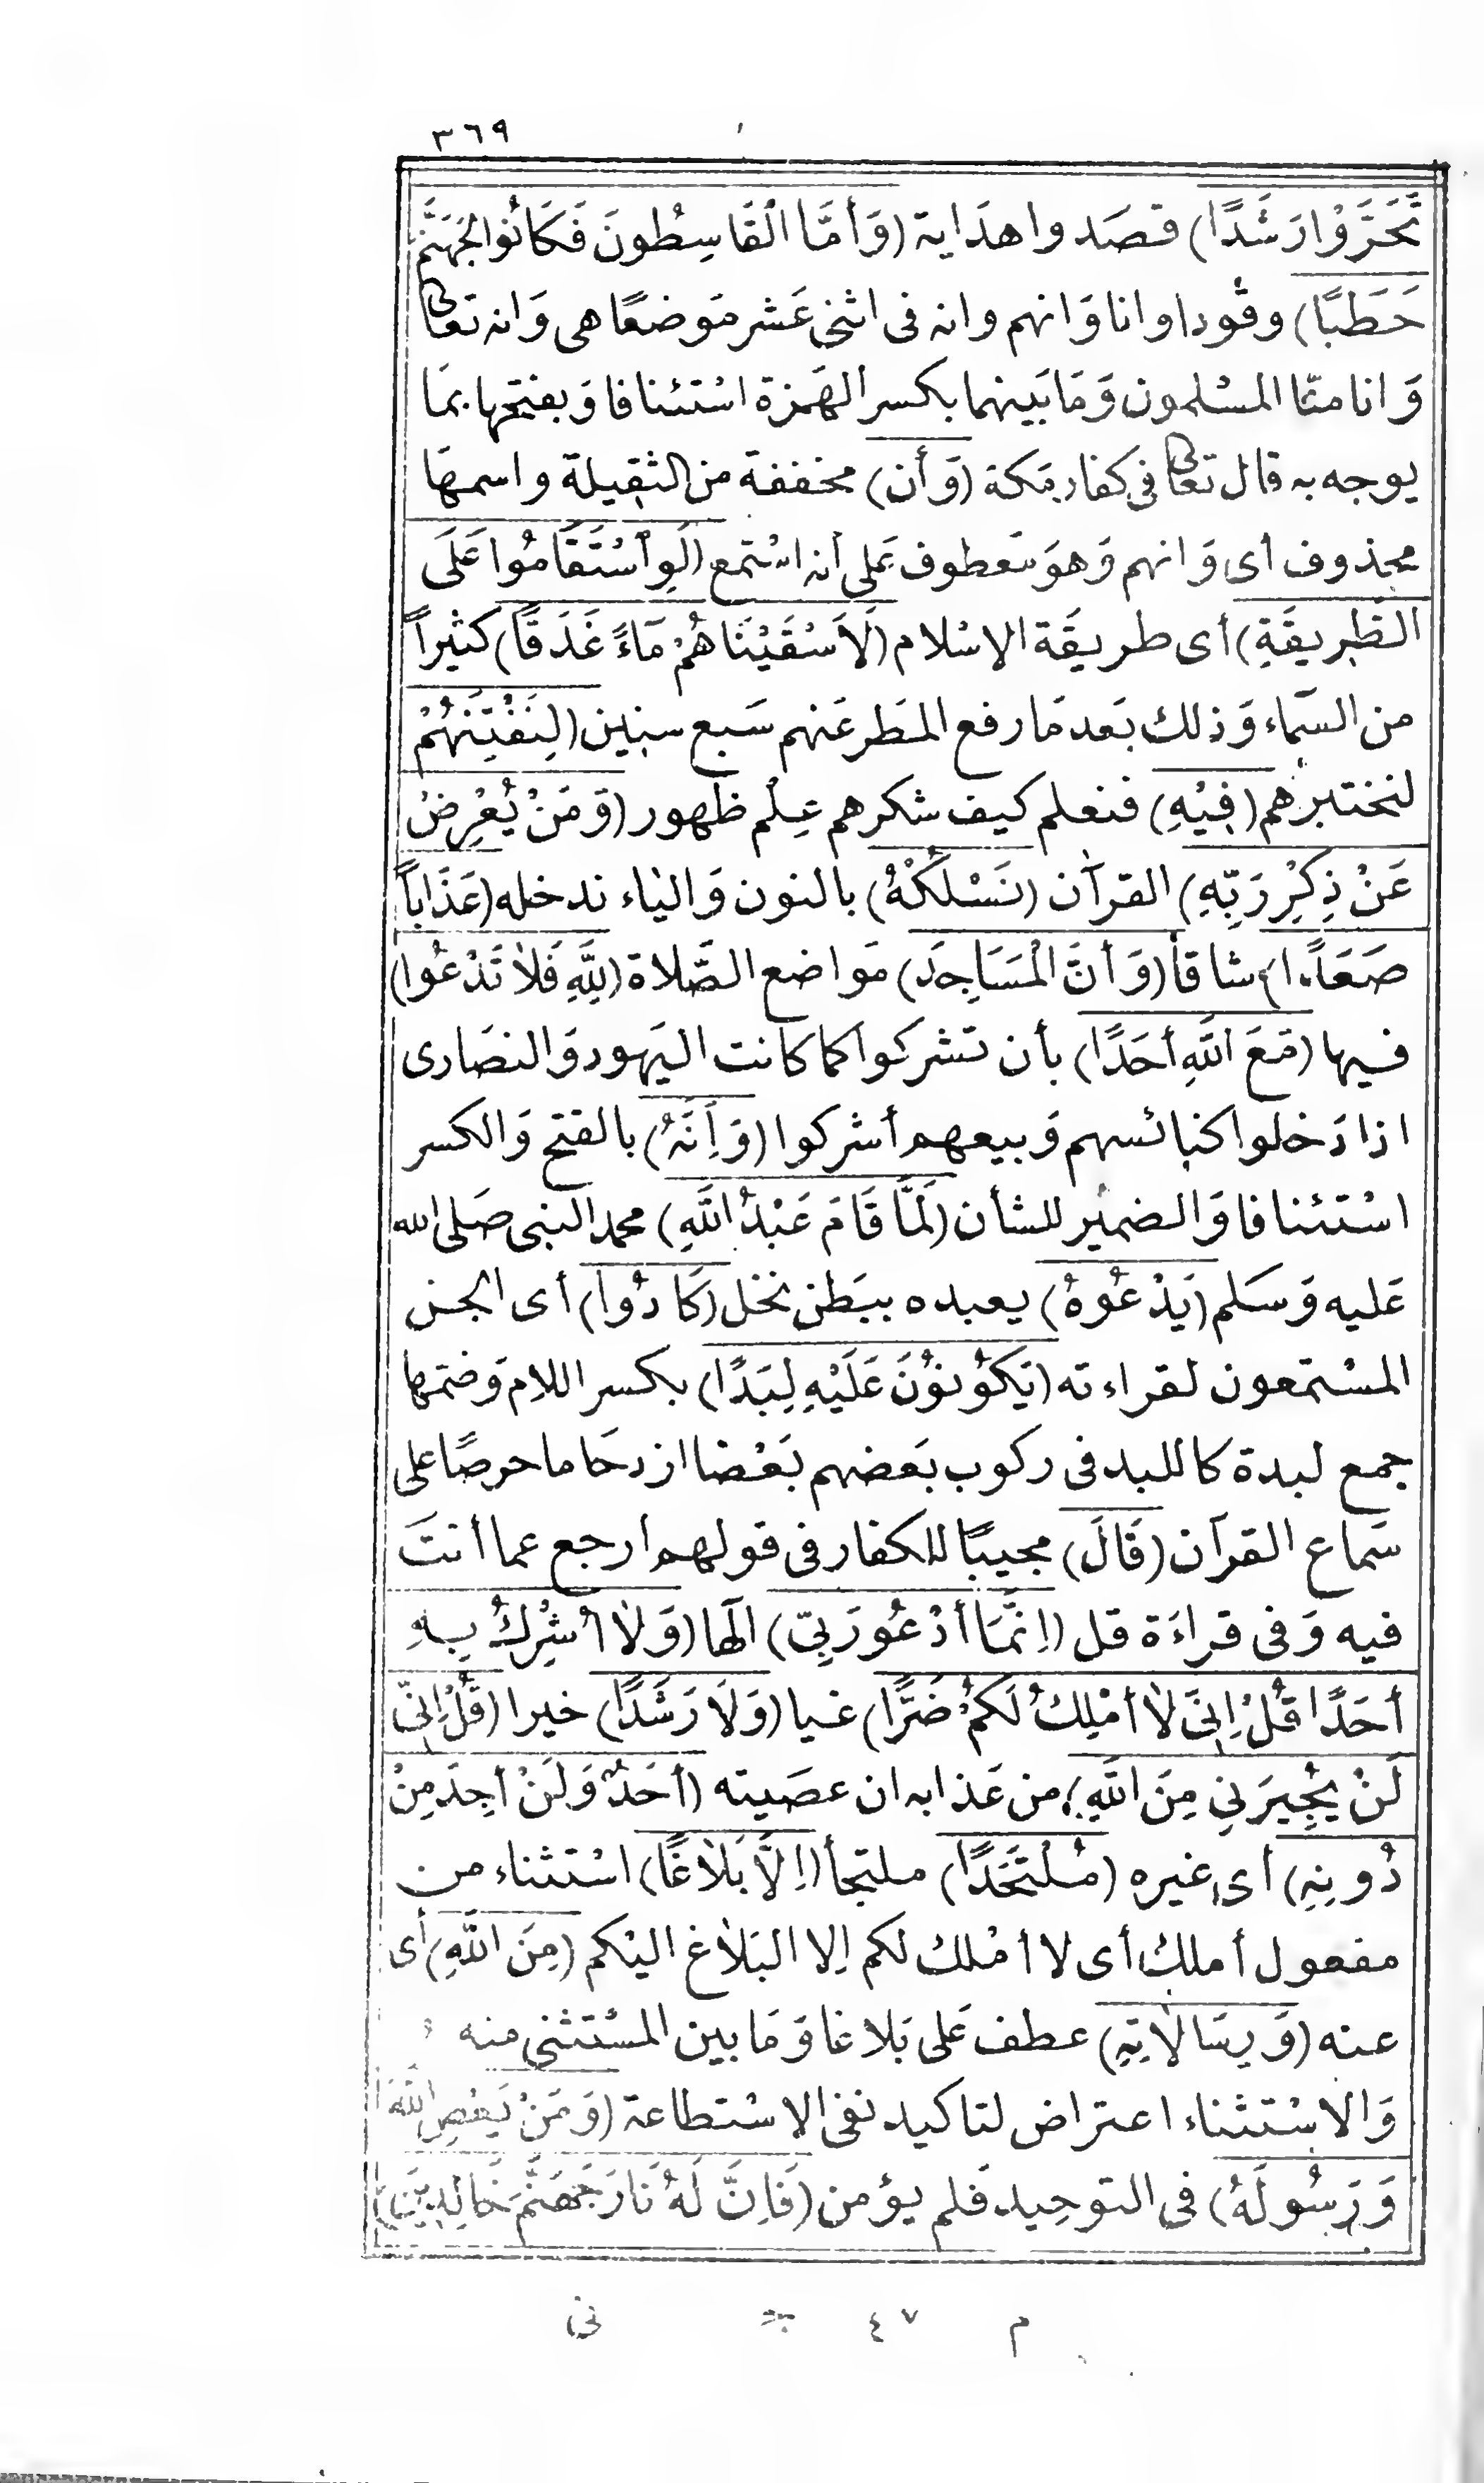 ٣٦٩
تَحَرَّوْا رَشَدًا) قصَدوا هدَاية (وَأَمَّا الْقَاسِطُونَ فَكَانُوا لِجَهَنَّمَ
حَطَبًا) وقودا وانا وَانهم وانه فى اثنى عَشر مَوضعًا هى وَانه تعالى
وَانا منّا المسْلمون وَمَا بَينهما بكسر الهَمزة اسْتئنافا وَبفتحها بمَا
يوجه به قال تعالى فى كفار مَكة (وَأَن) مخففة من الثقيلة واسمهَا
محذوف أى وَانهم وَهوَ مَعطوف عَلى أنه اسْتمع (لَوِ اسْتَقَامُوا عَلَى
الطَّرِيقَةِ) أى طريقَة الاسْلام (لَأَسْقَيْنَاهُمْ مَاءً غَدَقًا) كثيراً
من السّماء وَذلك بَعد مَا رفع المَطر عَنهم سَبع سنين (لِنَفْتِنَهُمْ
لنختبرهم (فِيْهِ) فنعلم كيف شكرهم عِلْم ظهور (وَمَنْ يُعْرِضْ
عَنْ ذِكْرِ رَبِّهِ) القرآن (نَسْلُكْهُ) بالنون وَالياء ندخله (عَذَاباً
صَعَداً) شاقاً (وَأَنَّ الْمَسَاجِدَ) مَواضع الصَّلاة (لِلَّهِ فَلَا تَدْعُوا)
فيها (مَعَ اللَّهِ أَحَدًا) بأن تشركوا كما كانت اليَهود وَالنصَارى
اذا دَخلوا كنائسهم وَبيعهم أشركوا (وَأَنَّهُ) بالفتح وَالكسر
اسْتئنافا وَالضمير للشأن (لَمَّا قَامَ عَبْدُ اللَّهِ) محمد النبى صَلى الله
عَليه وَسَلم (يَدْعُوهُ) يعبده ببَطن نخل (كَادُوا) أى الجن
المسْتمعون لقراءته (يَكُوْنُوْنَ عَلَيْهِ لِبَدًا) بكسر اللام وَضمها
جمع لبدة كاللبد فى ركوب بَعضهم بَعْضا ازدحَاما حرصًا على
سَماع القرآن (قَالَ) مجيبًا للكفار فى قولهم ارجع عما أنتَ
فيه وَفى قراءَة قل (اِنَّمَا أَدْعُو رَبِّى) الهَا (وَلَا أُشْرِكُ بِهِ
أَحَدًا قُلْ اِنِّى لَا أَمْلِكُ لَكُمْ ضَرًّا) غيا (وَلَا رَشَدًا) خيرا (قُلْ اِنِّى
لَنْ يُجِيْرَنِى مِنَ اللَّهِ) من عَذابه ان عصَيته (أَحَدٌ وَلَنْ أَجِدَ مِنْ
دُونِهِ) أى غيره (مُلْتَحَدًا) ملتجأ (اِلَّا بَلَاغًا) اسْتثناء من
مفعول أملك أى لا أمْلك لكم اِلا البَلاغ اليْكم (مِنَ اللَّهِ) أى
عنه (وَرِسَالَاتِهِ) عطف عَلى بَلاغا وَمَا بين المسْتثنى منه
وَالاسْتثناء اعتراض لتاكيد نفى الاسْتطاعة (وَمَنْ يَعْصِ اللَّهَ
وَرَسُولَهُ) فى التوحيد فَلم يؤمن (فَاِنَّ لَهُ نَارَ جَهَنَّمَ خَالِدِيْنَ)
م ٤٧ نى